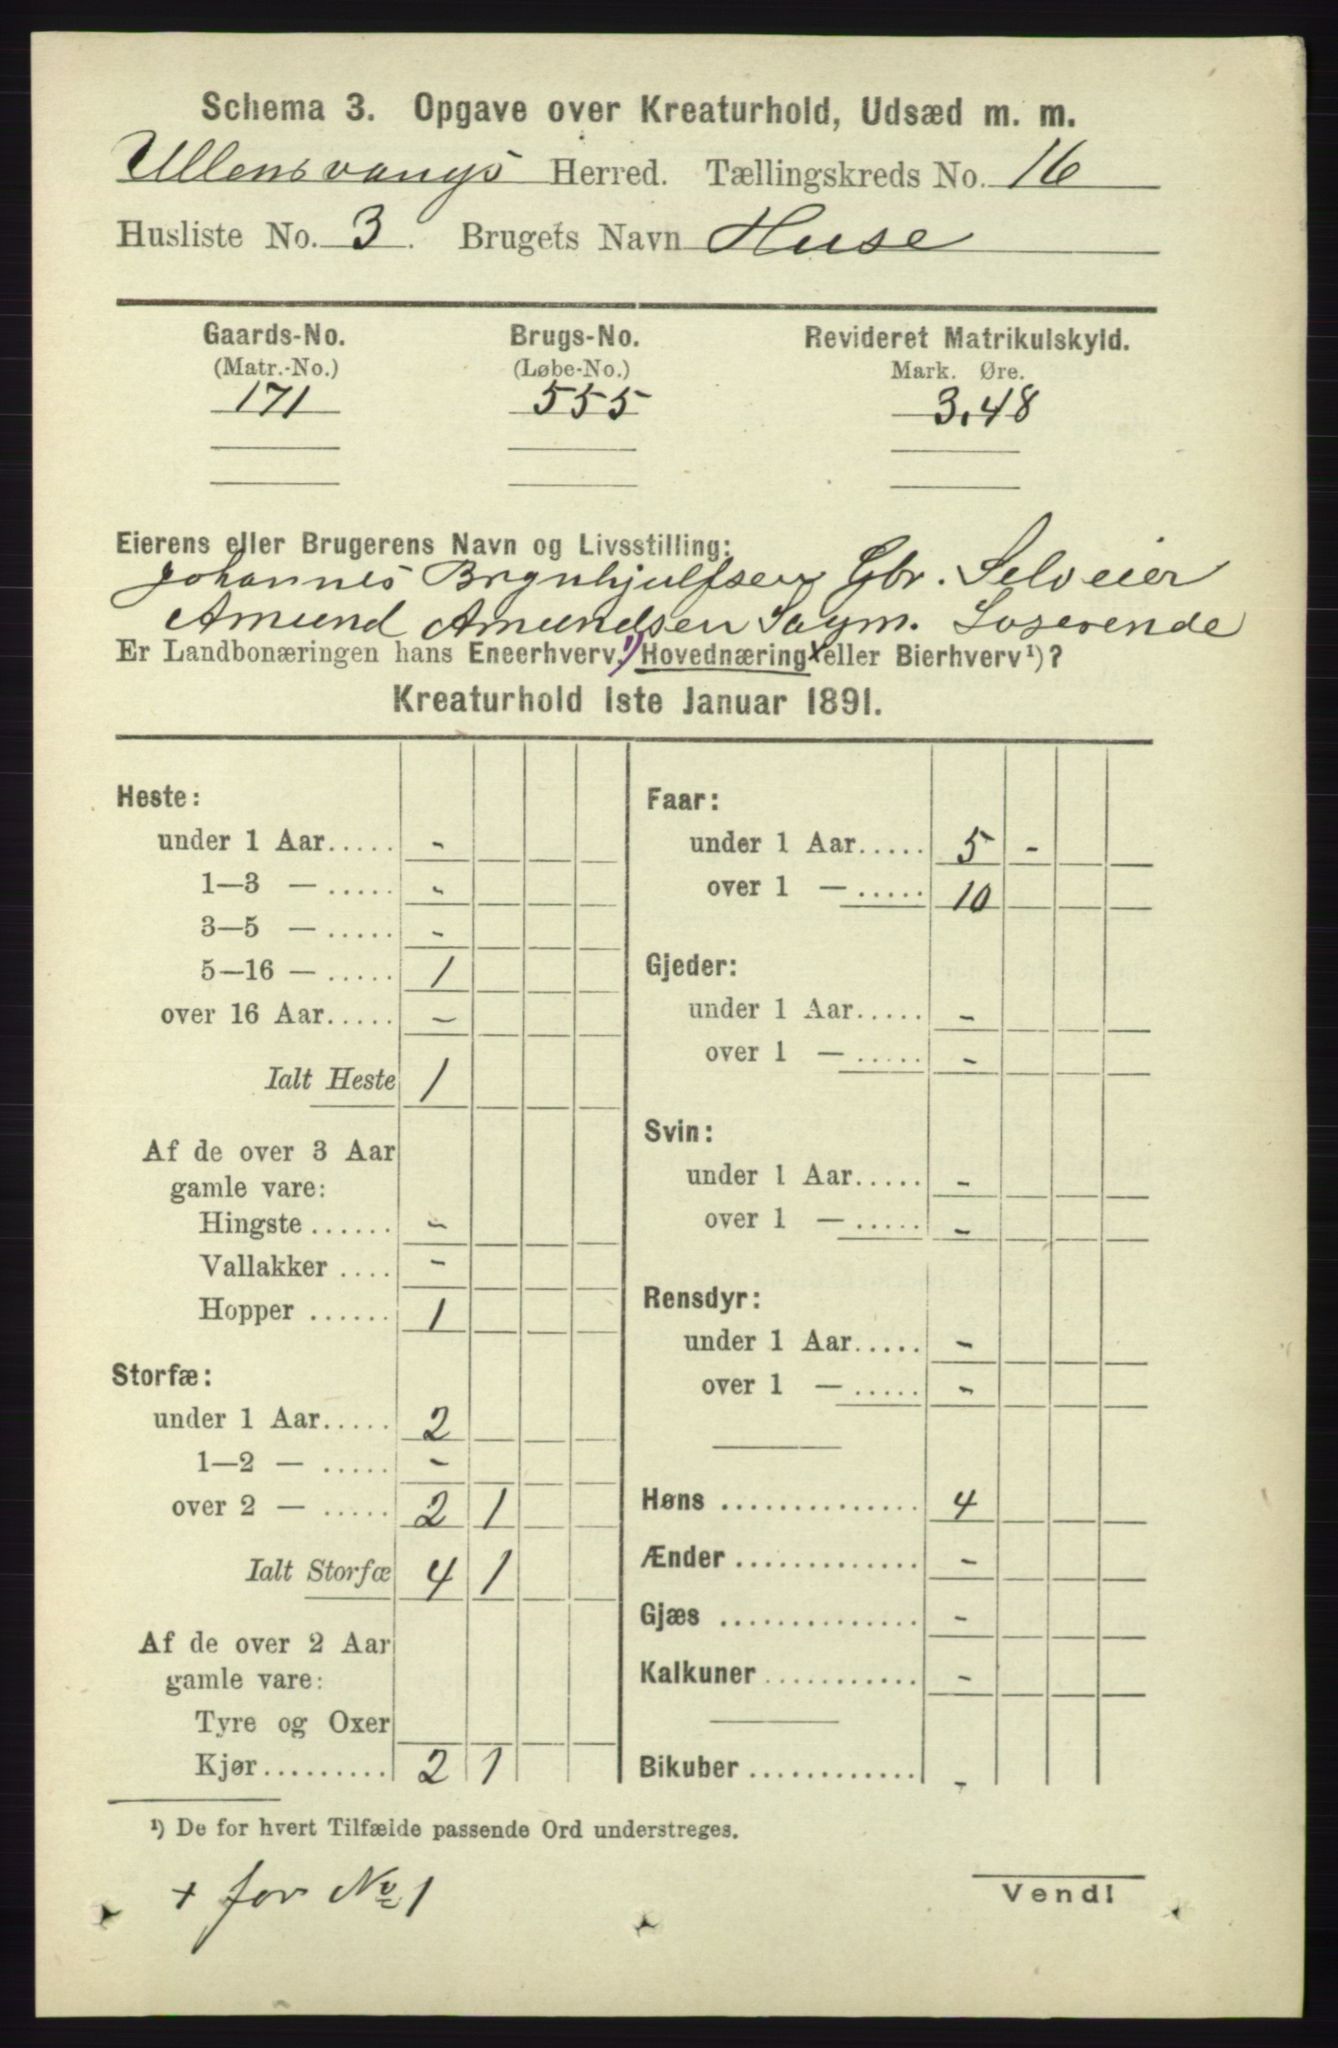 Schema 3. Opgave over Kreaturhold, Udsæd m. m.
Ullensvangs Herred. Tællingskreds No. 16
Husliste No. 3. Brugets Navn Huse
Gaards-No. Brugs-No. Revideret Matrikulskyld.
(Matr.-No.) (Løbe-No.) Mark. Øre.
171 555 3,48
Eierens eller Brugerens Navn og Livsstilling:
Johannes Brynhjulfsen Gbr. Selveier
Amund Amundsen Loserende
Er Landbonæringen hans Eneerhverv,¹) Hovednæring x eller Bierhverv¹)?
Kreaturhold 1ste Januar 1891.
Heste:
under 1 Aar..... -
1—3 — ..... -
3—5 — ..... -
5—16 — ..... 1
over 16 Aar..... -
Ialt Heste 1
Af de over 3 Aar
gamle vare:
Hingste ...... -
Vallakker .... -
Hopper ...... 1
Storfæ:
under 1 Aar..... 2
1—2 — ..... -
over 2 — ..... 2 1
Ialt Storfæ 4 1
Af de over 2 Aar
gamle vare:
Tyre og Oxer
Kjør.......... 2 1
Faar:
under 1 Aar..... 5 -
over 1 — ..... 10
Gjeder:
under 1 Aar..... -
over 1 — ..... -
Svin:
under 1 Aar..... -
over 1 — ..... -
Rensdyr:
under 1 Aar..... -
over 1 — ..... -
Høns .............. 4
Ænder ............. -
Gjæs .............. -
Kalkuner ........... -
Bikuber ............ -
¹) De for hvert Tilfælde passende Ord understreges.
+ for No 1
Vend!